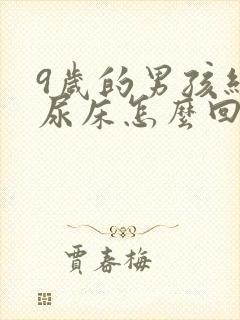 9歲的男孩經
尿床怎麼回
賈春梅